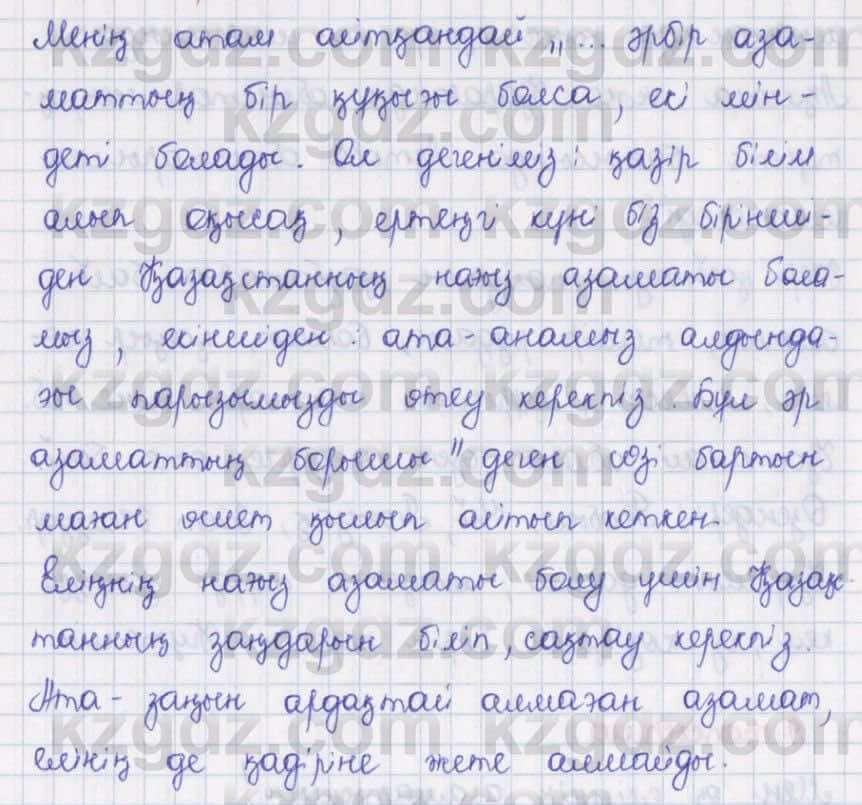 Менің атам айтқандай „... әрбір аза-
маттың бір құқығы болса, екі мін-
деті болады. Ол дегеніміз: қазір білім
алып оқысақ, ертеңгі күні біз бірінші-
ден Қазақстанның нағыз азаматы бола-
мыз, екіншіден: ата-анамыз алдында-
ғы парызымызды өтеу керекпіз. Бұл әр
азаматтың борышы" деген сөзі бартын
маған өсиет қылып айтып кеткен.
Еліңнің нағыз азаматы болу үшін Қазақ
танның заңдарын біліп, сақтау керекпіз.
Ата-заңын ардақтай алмаған азамат,
елінің де қадіріне жете алмайды.
kzgdz.com